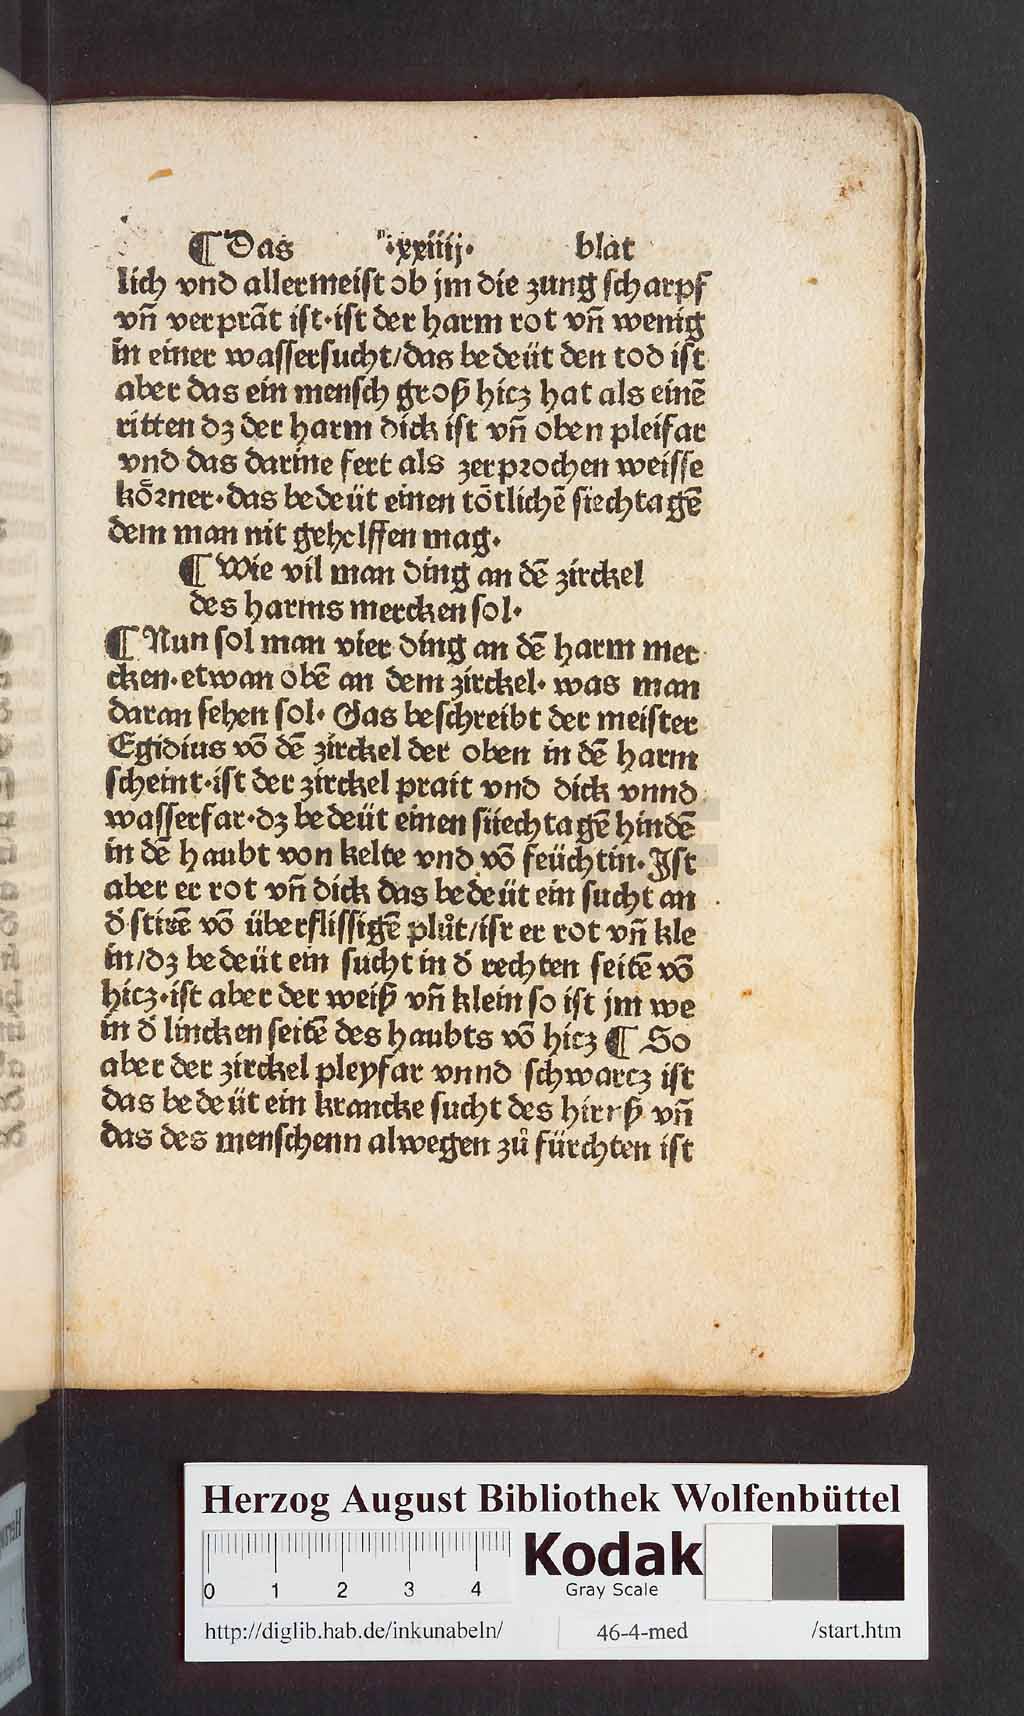 ¶ Das ·xxiiij· blat
lich vnd allermeist ob jm die zung scharpf
vn̄ verprāt ist·ist der harm rot vn̄ wenig
in einer wassersucht/das bedeüt den tod ist
aber das ein mensch groß hicz hat als einē
ritten dz der harm dick ist vn̄ oben pleifar
vnd das darine fert als zerprochen weisse
koͤrner·das bedeüt einen toͤtlichē siechtagē
dem man nit gehelffen mag·
¶ Wie vil man ding an dē zirckel
des harms mercken sol·
¶ Nun sol man vier ding an dē harm mer
cken·etwan obē an dem zirckel· was man
daran sehen sol· Das beschreibt der meister
Egidius vō dē zirckel der oben in dē harm
scheint·ist der zirckel prait vnd dick vnnd
wasserfar·dz bedeüt einen siiechtagē hindē
in dē haubt von kelte vnd vō feüchtin· Ist
aber er rot vn̄ dick das bedeüt ein sucht an
d̄ stirē vō überflissigē plůt/ist er rot vn̄ kle
in/dz bedeüt ein sucht in d̄ rechten seitē vō
hicz·ist aber der weiß vn̄ klein so ist jm we
in d̄ lincken seitē des haubts vō hicz ¶ So
aber der zirckel pleyfar vnnd schwarcz ist
das bedeüt ein krancke sucht des hirnß vn̄
das des menschenn alwegen zů fürchten ist
Herzog August Bibliothek Wolfenbüttel
0 1 2 3 4
Kodak
Gray Scale
http://diglib.hab.de/inkunabeln/ 46-4-med /start.htm